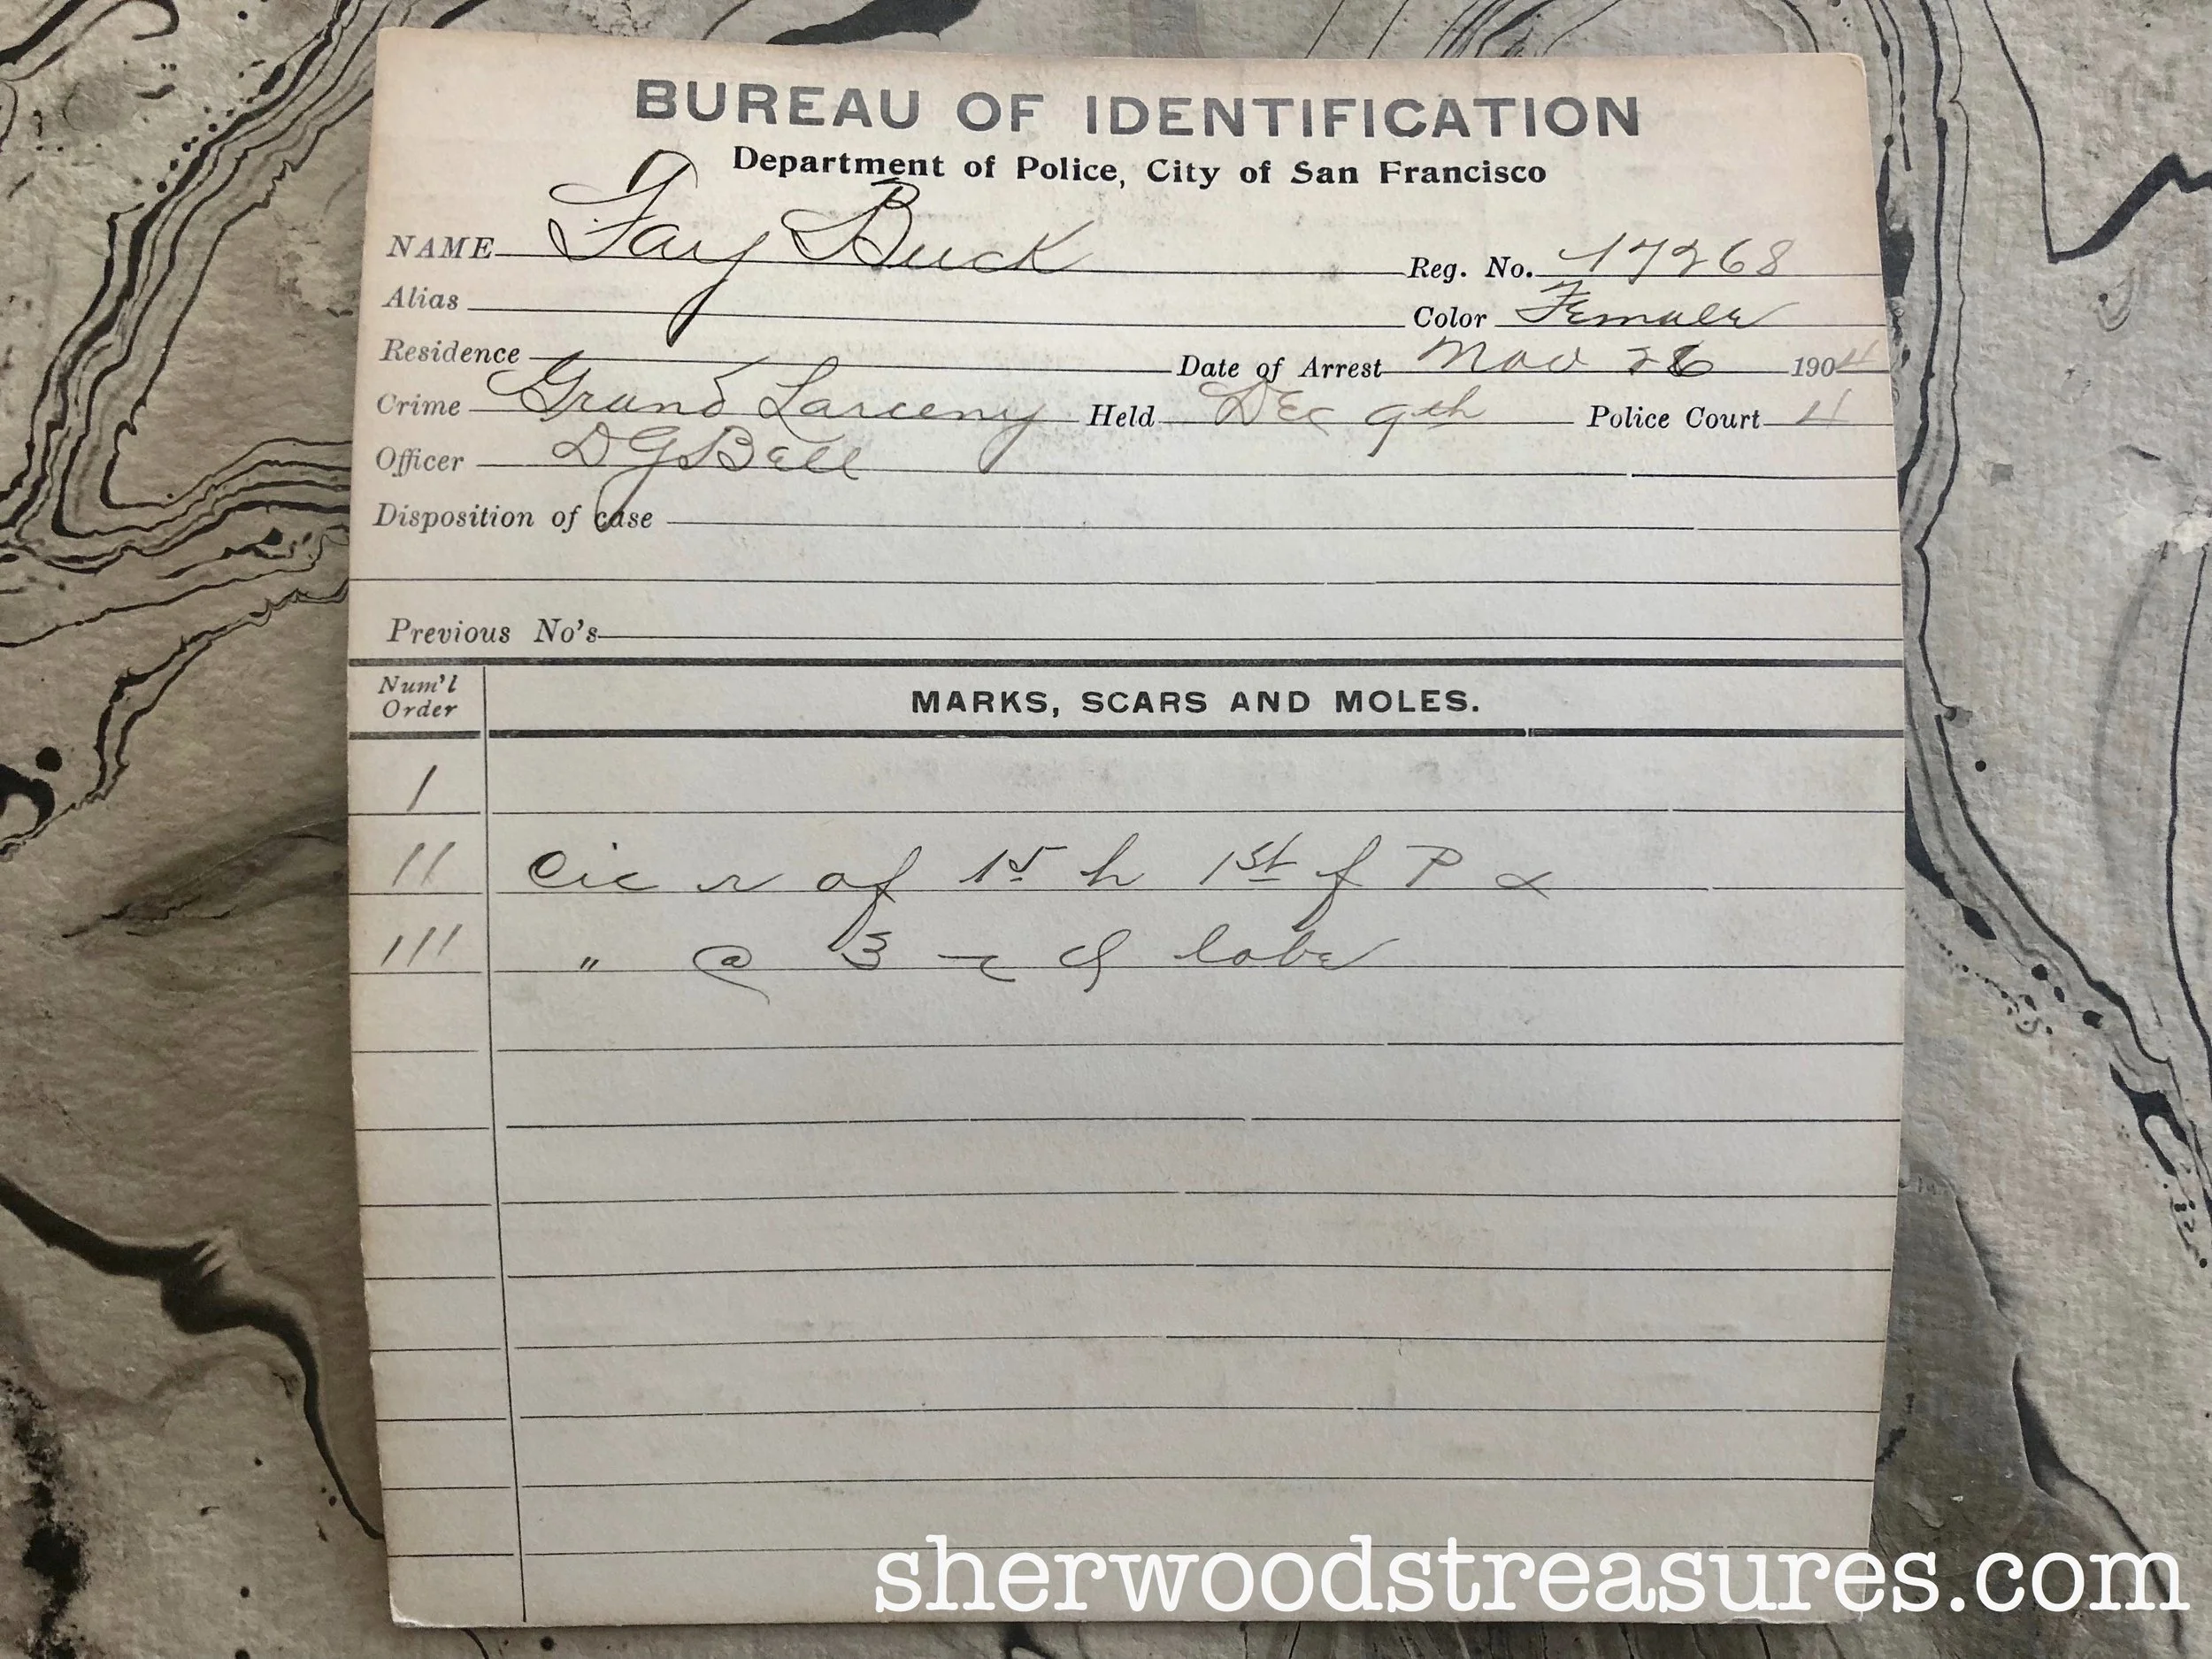 BUREAU OF IDENTIFICATION
Department of Police, City of San Francisco
NAME Fay Buck Reg. No. 17268
Alias Color Female
Residence Date of Arrest Nov 26 1904
Crime Grand Larceny Held Dec 9th Police Court 4
Officer D G Bell
Disposition of case
Previous No's
Num'l Order MARKS, SCARS AND MOLES.
I
II Cic r of 15 h 1st f P
III " @ 3 c lobe
sherwoodstreasures.com